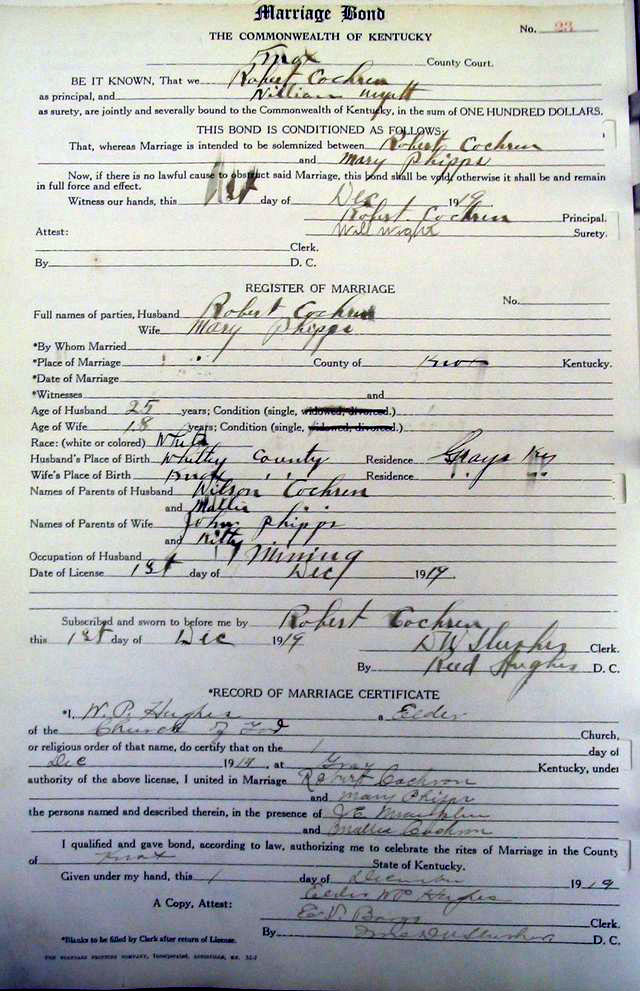 Marriage Bond
No. 23
THE COMMONWEALTH OF KENTUCKY
Knox County Court.
BE IT KNOWN, That we Robert Cochren
as principal, and William Wyatt
as surety, are jointly and severally bound to the Commonwealth of Kentucky, in the sum of ONE HUNDRED DOLLARS.
THIS BOND IS CONDITIONED AS FOLLOWS:
That, whereas Marriage is intended to be solemnized between Robert Cochren
and Mary Phipps
Now, if there is no lawful cause to obstruct said Marriage, this bond shall be void, otherwise it shall be and remain
in full force and effect.
Witness our hands, this 1st day of Dec 1919
Robert Cochren Principal.
Attest: Will Wight Surety.
Clerk.
By D. C.
REGISTER OF MARRIAGE
No.
Full names of parties, Husband Robert Cochren
Wife Mary Phipps
*By Whom Married
*Place of Marriage " " County of Knox Kentucky.
*Date of Marriage
*Witnesses and
Age of Husband 25 years; Condition (single, widowed, divorced.)
Age of Wife 18 years; Condition (single, widowed, divorced.)
Race: (white or colored) White
Husband's Place of Birth Whitley County Residence Grays Ky
Wife's Place of Birth Knox " " Residence " "
Names of Parents of Husband Wilson Cochren
and Mallie " "
Names of Parents of Wife John Phipps
and Kitty "
Occupation of Husband Mining
Date of License 1st day of Dec 1919.
Subscribed and sworn to before me by Robert Cochren
this 1st day of Dec 1919
D W Slusher Clerk.
By Reed Hughes D. C.
*RECORD OF MARRIAGE CERTIFICATE
*I, W. P. Hughes a Elder
of the Church of God Church,
or religious order of that name, do certify that on the 1 day of
Dec 1919, at Gray Kentucky, under
authority of the above license, I united in Marriage Robert Cochron
and Mary Phipps
the persons named and described therein, in the presence of J. E.
and Mallie Cochron
I qualified and gave bond, according to law, authorizing me to celebrate the rites of Marriage in the County
of Knox State of Kentucky.
Given under my hand, this 1 day of December 1919
Elder W P Hughes
A Copy, Attest: E. V. Clerk.
By D. C.
*Blanks to be filled by Clerk after return of License.
THE STANDARD PRINTING COMPANY, Incorporated, LOUISVILLE, KY.